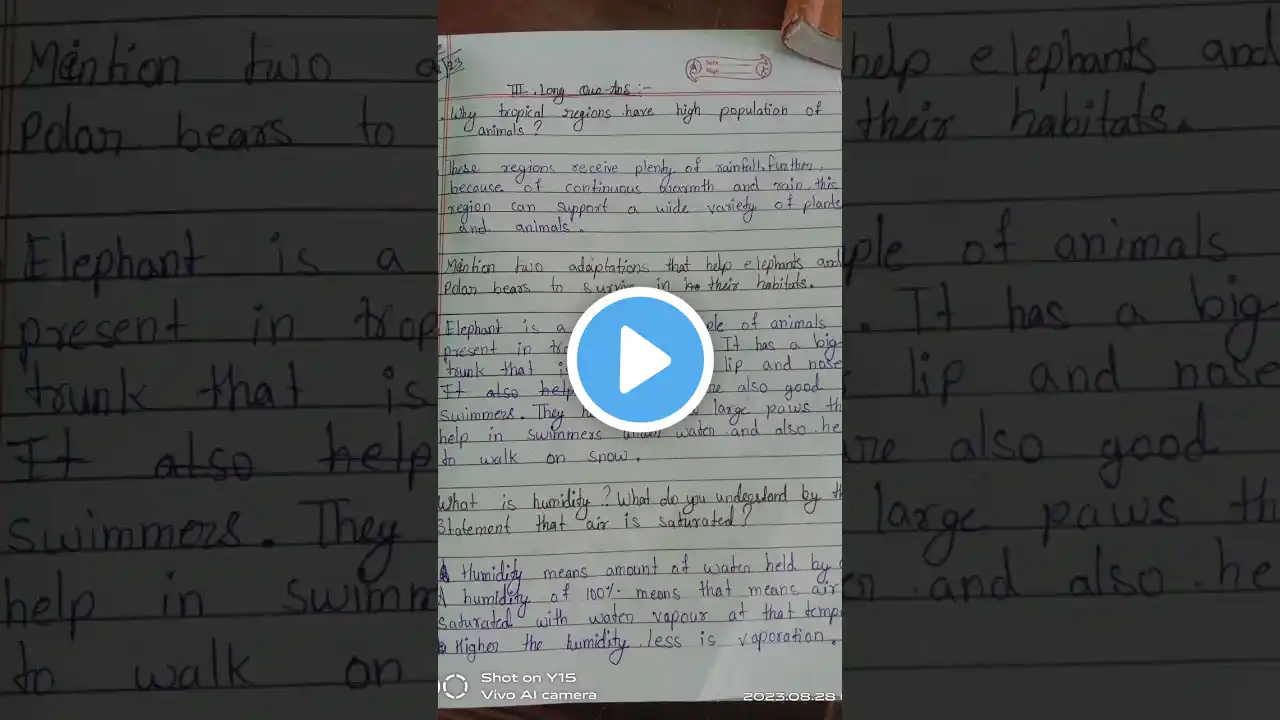 23
Date
Page
III. Long Que-Ans :-
Why tropical regions have high population of
animals ?
These regions receive plenty of rainfall. Further,
because of continuous warmth and rain, this
region can support a wide variety of plants
and animals.
Mention two adaptations that help elephants and
Polar bears to survive in their habitats.
Elephant is a of animals
present in It has a big
trunk that lip and nose
It also help also good
swimmers. They large paws
help in swimmers water and also
to walk on snow.
What is humidity ? What do you understand by
Statement that air is saturated ?
Humidity means amount of water held by
humidity of 100% means that means air
saturated with water vapour at that
Higher the humidity less is vaporation.
Shot on Y15
Vivo AI camera
2023.08.28